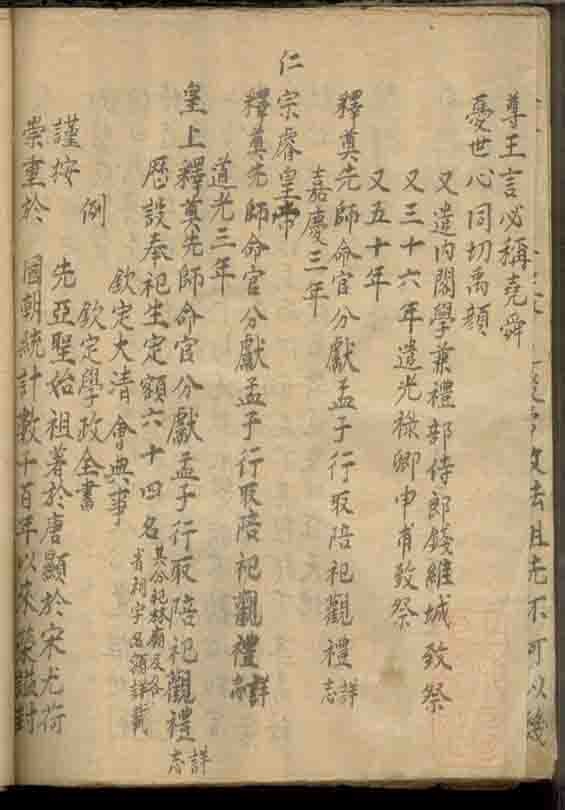 尊王言必稱堯舜
憂世心同切禹顏
又遣内閣學兼禮部侍郎錢維城致祭
又三十六年遣光祿卿申甫致祭
又五十年
釋奠先師命官分獻孟子行取陪祀觀禮詳志
嘉慶三年
仁宗睿皇帝
釋奠先師命官分獻孟子行取陪祀觀禮詳志
道光三年
皇上釋奠先師命官分獻孟子行取陪祀觀禮詳志
歷設奉祀生定額六十四名其分祀林廟及各省列字名額詳載
欽定大清會典事
例
欽定學政全書
謹按先亞聖始祖著於唐顯於宋尤荷
崇重於國朝統計數千百年以來榮謚封